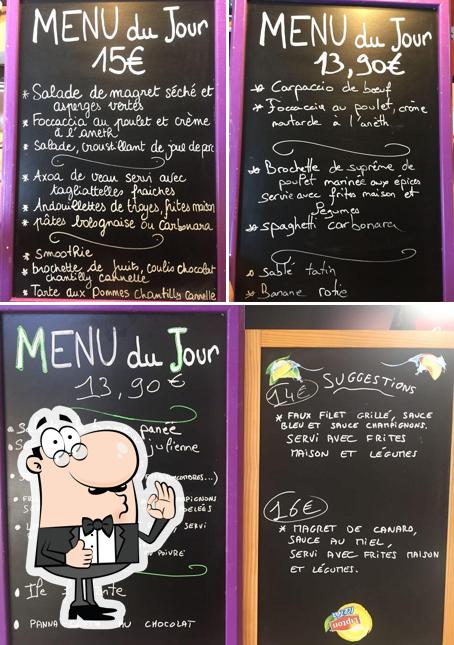 MENU du Jour
15€
* Salade de magret séché et
asperges vertes
* Foccaccia au poulet et crème
à l'aneth
* Salade, croustillant de joue de porc
* Axoa de veau servi avec
tagliattelles fraiches
* Andouillettes de troyes, frites maison
* pâtes bolognaise ou carbonara
* Smoothie
* brochette de fruits, coulis chocolat
chantilly cannelle
* Tarte aux Pommes Chantilly cannelle
MENU du Jour
13,90€
* Carpaccio de bœuf
* Foccaccia au poulet, crème
moutarde à l'aneth
* Brochette de suprême de
poulet marinée aux épices
servie avec frites maison et
légumes
* spaghetti carbonara
Sablé tatin
Banane rotie
MENU du Jour
13,90€
panée
julienne
OMBRES...)
PIGNONS
SERVI
POIVRE
Ile
PANNA AU CHOCOLAT
SUGGESTIONS
14€
* FAUX FILET GRILLÉ, SAUCE
BLEU ET SAUCE CHAMPIGNONS.
SERVI AVEC FRITES
MAISON ET LÉGUMES
16€
* MAGRET DE CANARD,
SAUCE AU MIEL,
SERVI AVEC FRITES MAISON
ET LÉGUMES.
Lipton